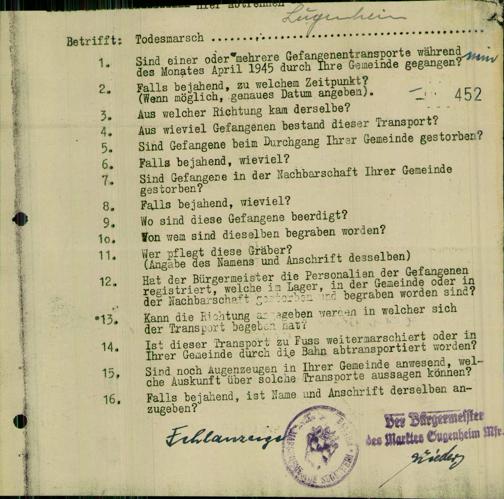 Hier abtrennen
Sugenheim
Betrifft: Todesmarsch
1. Sind einer oder mehrere Gefangenentransporte während
des Monates April 1945 durch Ihre Gemeinde gegangen? nein
2. Falls bejahend, zu welchem Zeitpunkt?
(Wenn möglich, genaues Datum angeben).
452
3. Aus welcher Richtung kam derselbe?
4. Aus wieviel Gefangenen bestand dieser Transport?
5. Sind Gefangene beim Durchgang Ihrer Gemeinde gestorben?
6. Falls bejahend, wieviel?
7. Sind Gefangene in der Nachbarschaft Ihrer Gemeinde
gestorben?
8. Falls bejahend, wieviel?
9. Wo sind diese Gefangene beerdigt?
10. Von wem sind dieselben begraben worden?
11. Wer pflegt diese Gräber?
(Angabe des Namens und Anschrift desselben)
12. Hat der Bürgermeister die Personalien der Gefangenen
registriert, welche im Lager, in der Gemeinde oder in
der Nachbarschaft gestorben und begraben worden sind?
13. Kann die Richtung angegeben werden in welcher sich
der Transport begeben hat?
14. Ist dieser Transport zu Fuss weitermarschiert oder in
Ihrer Gemeinde durch die Bahn abtransportiert worden?
15. Sind noch Augenzeugen in Ihrer Gemeinde anwesend, wel-
che Auskunft über solche Transporte aussagen können?
16. Falls bejahend, ist Name und Anschrift derselben an-
zugeben?
Fehlanzeige
Der Bürgermeister
des Marktes Sugenheim Mfr.